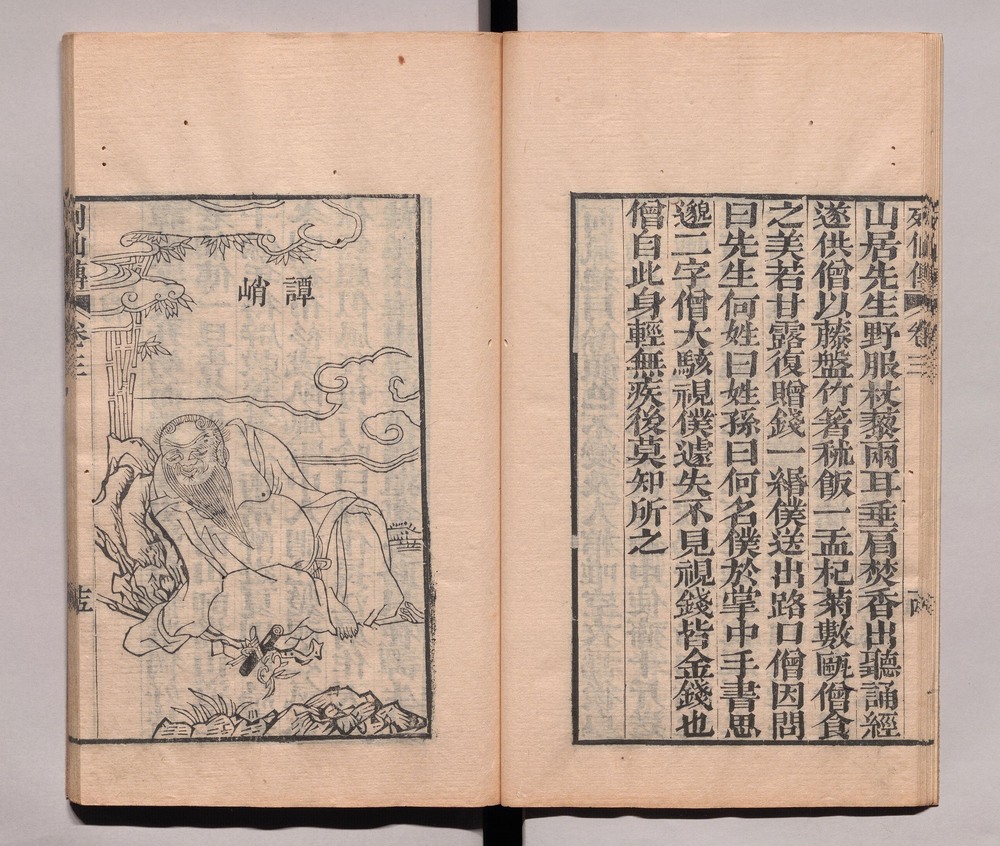 列仙傳
卷三
山居先生野服杖藜兩耳垂肩焚香出聽誦經
遂供僧以藤盤竹箸秫飯一盂杞菊數甌僧食
之美若甘露復贈錢一緡僕送出路口僧因問
曰先生何姓曰姓孫曰何名僕於掌中手書思
邈二字僧大駭視僕遽失不見視錢皆金錢也
僧自此身輕無疾後莫知所之
譚峭
列仙傳
卷三